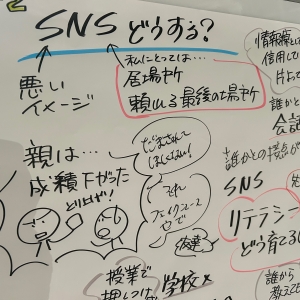 SNS どうする?
悪い
イメージ
私にとっては…
居場所
頼れる最後の場所
情報源として
信用して
誰かと
会話
誰かとの接点が
SNS
リテラシー
どう育てる
親は…
成績下がった
とりあげ!
だまされて
ほしくない!
それ
フェイクニュース
友達
授業で
学校
誰から